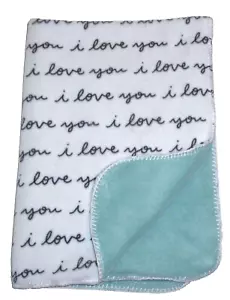 you i love you i love
i love you i love you
you i love you i love
i love you i love you
you i love you i love
i love you
you i love
i love you
you i love
i love